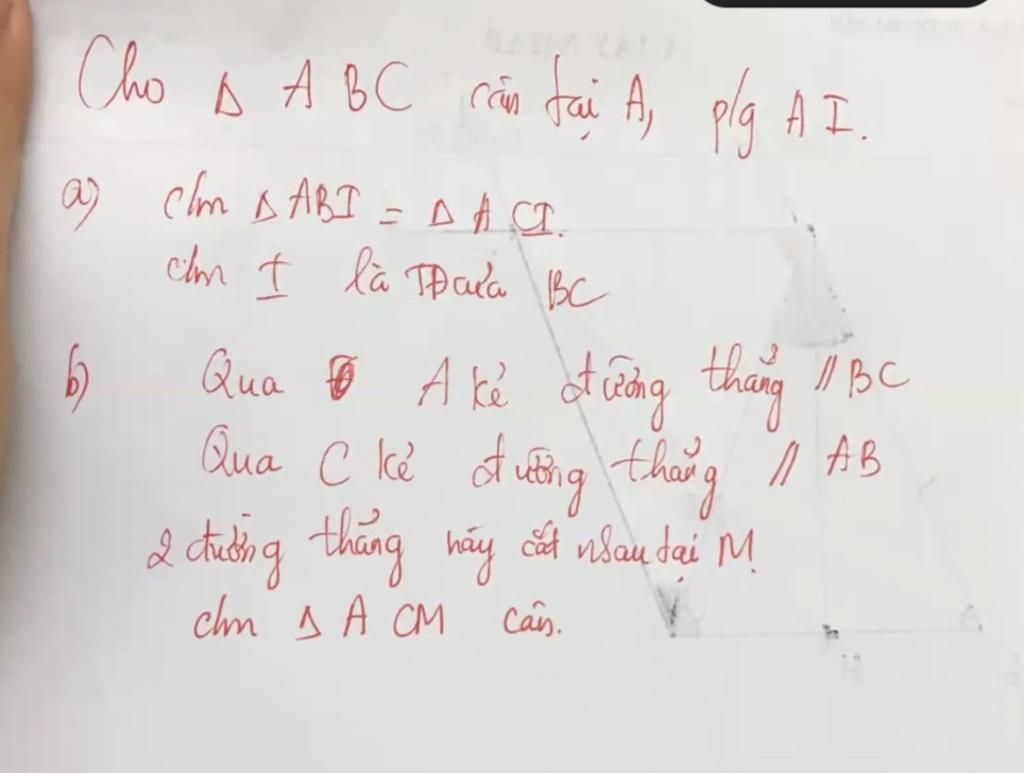 Cho Δ ABC cân tại A, p/g AI.
a) c/m Δ ABI = Δ ACI.
c/m I là TĐ của BC
b) Qua A kẻ đường thẳng // BC
Qua C kẻ đường thẳng // AB
2 đường thẳng này cắt nhau tại M.
c/m Δ ACM cân.